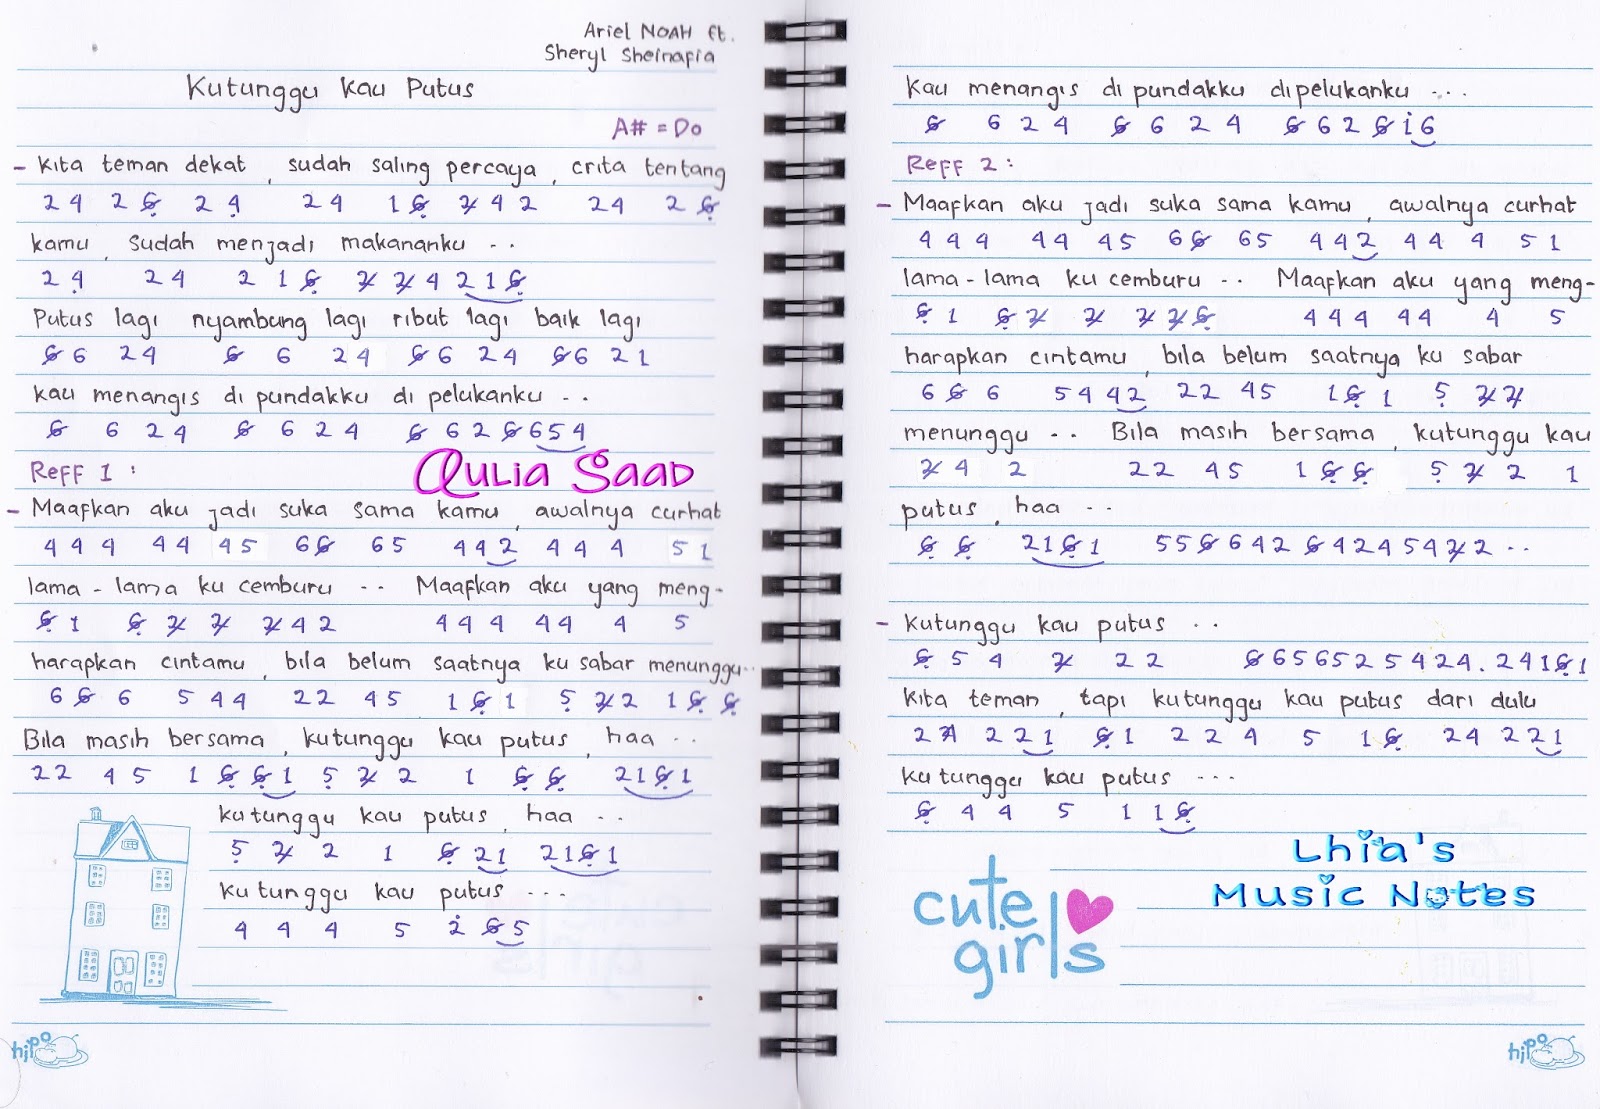 Ariel NOAH ft.
Sheryl Sheinafia
Kutunggu Kau Putus
A# = Do
- Kita teman dekat, sudah saling percaya, crita tentang
2 4 2 6̸̣ 2 4̣ 2 4 1 6̸̣ 2̸ 4 2 2 4 2 6̸̣
kamu, sudah menjadi makananku . .
2 4̣ 2 4 2 1 6̸̣ 2̸ 2̸ 4 2 1 6̸̣
Putus lagi nyambung lagi ribut lagi baik lagi
6̸ 6 2 4 6̸ 6 2 4 6̸ 6 2 4 6̸ 6 2 1
kau menangis di pundakku di pelukanku . .
6̸ 6 2 4 6̸ 6 2 4 6̸ 6 2 6̸ 6 5 4
Reff 1 :
Qulia Saad
- Maafkan aku jadi suka sama kamu, awalnya curhat
4 4 4 4 4 4 5 6 6̸ 6 5 4 4 2 4 4 4 5 1
lama - lama ku cemburu . . Maafkan aku yang meng-
6̸̣ 1 6̸̣ 2̸ 2̸ 2̸ 4 2 4 4 4 4 4 4 5
harapkan cintamu, bila belum saatnya ku sabar menunggu..
6 6̸ 6 5 4 4 2 2 4 5 1 6̸̣ 1 5̣ 2̸ 2 1 6̸̣ 6̸̣
Bila masih bersama, kutunggu kau putus, haa . .
2 2 4 5 1 6̸̣ 6̸̣ 1 5̣ 2̸ 2 1 6̸̣ 6̸̣ 2 1 6̸̣ 1
kutunggu kau putus, haa . .
5̣ 2̸ 2 1 6̸̣ 2 1 2 1 6̸̣ 1
kutunggu kau putus . . .
4 4 4 5 2̇ 6̸ 5
hipo
Kau menangis di pundakku dipelukanku . . .
6̸ 6 2 4 6̸ 6 2 4 6̸ 6 2 6̸ 1̇ 6
Reff 2 :
- Maafkan aku jadi suka sama kamu, awalnya curhat
4 4 4 4 4 4 5 6 6̸ 6 5 4 4 2 4 4 4 5 1
lama - lama ku cemburu . . Maafkan aku yang meng-
6̸̣ 1 6̸̣ 2̸ 2̸ 2̸ 2̸ 6̸̣ 4 4 4 4 4 4 5
harapkan cintamu, bila belum saatnya ku sabar
6 6̸ 6 5 4 4 2 2 2 4 5 1 6̸̣ 1 5̣ 2̸ 2̸
menunggu . . Bila masih bersama, kutunggu kau
2̸ 4 2 2 2 4 5 1 6̸̣ 6̸̣ 5̣ 2̸ 2 1
putus, haa . .
6̸̣ 6̸̣ 2 1 6̸̣ 1 5 5 6̸ 6 4 2 6̸ 4 2 4 5 4 2̸ 2 . .
- Kutunggu kau putus . .
6̸̣ 5 4 2̸ 2 2 6̸ 6 5 6 5 2 5 4 2 4 . 2 4 1 6̸̣ 1
Kita teman, tapi kutunggu kau putus dari dulu
2 4 2 2 1 6̸̣ 1 2 2 4 5 1 6̸̣ 2 4 2 2 1
kutunggu kau putus . . .
6̸̣ 4 4 5 1 1 6̸̣
Lhia's
Music Notes
cute
girls
hipo